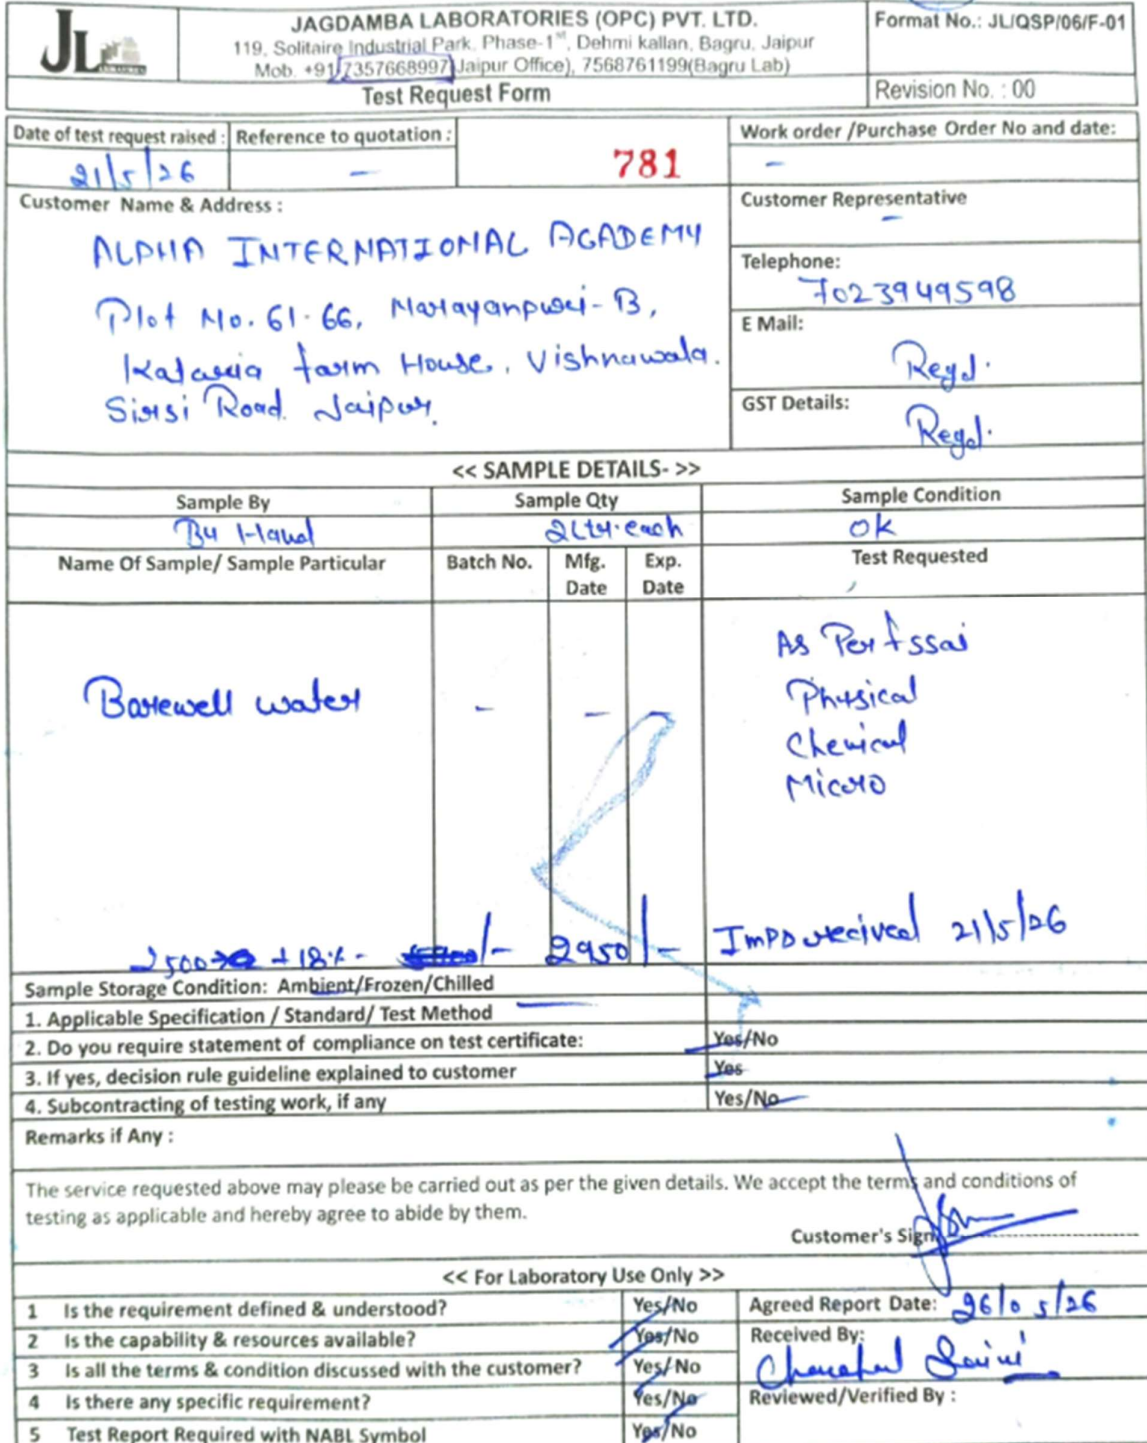 JL
JAGDAMBA LABORATORIES (OPC) PVT. LTD.
119, Solitaire Industrial Park, Phase-1st, Dehmi kallan, Bagru, Jaipur
Mob. +91 7357668997(Jaipur Office), 7568761199(Bagru Lab)
Test Request Form
Format No.: JL/QSP/06/F-01
Revision No. : 00
Date of test request raised :
21/5/26
Reference to quotation :
-
781
Work order /Purchase Order No and date:
-
Customer Name & Address :
ALPHA INTERNATIONAL ACADEMY
Plot No. 61-66, Narayanpuri-B,
Kataria farm House, Vishnawala.
Sirsi Road Jaipur.
Customer Representative
-
Telephone:
7023949598
E Mail:
Regd.
GST Details:
Regd.
<< SAMPLE DETAILS- >>
Sample By Sample Qty Sample Condition
By Hand 2Ltr. each ok
Name Of Sample/ Sample Particular Batch No. Mfg. Date Exp. Date Test Requested
Borewell water - - -
As Per fssai
Physical
Chemical
Micro
2500 + 18% - /- 2950/-
recived 21/5/26
Sample Storage Condition: Ambient/Frozen/Chilled
1. Applicable Specification / Standard/ Test Method
2. Do you require statement of compliance on test certificate: Yes/No
3. If yes, decision rule guideline explained to customer Yes
4. Subcontracting of testing work, if any Yes/No
Remarks if Any :
The service requested above may please be carried out as per the given details. We accept the terms and conditions of
testing as applicable and hereby agree to abide by them.
Customer's Sign
<< For Laboratory Use Only >>
1 Is the requirement defined & understood? Yes/No
2 Is the capability & resources available? Yes/No
3 Is all the terms & condition discussed with the customer? Yes/No
4 Is there any specific requirement? Yes/No
5 Test Report Required with NABL Symbol Yes/No
Agreed Report Date: 26/05/26
Received By:
Saini
Reviewed/Verified By :